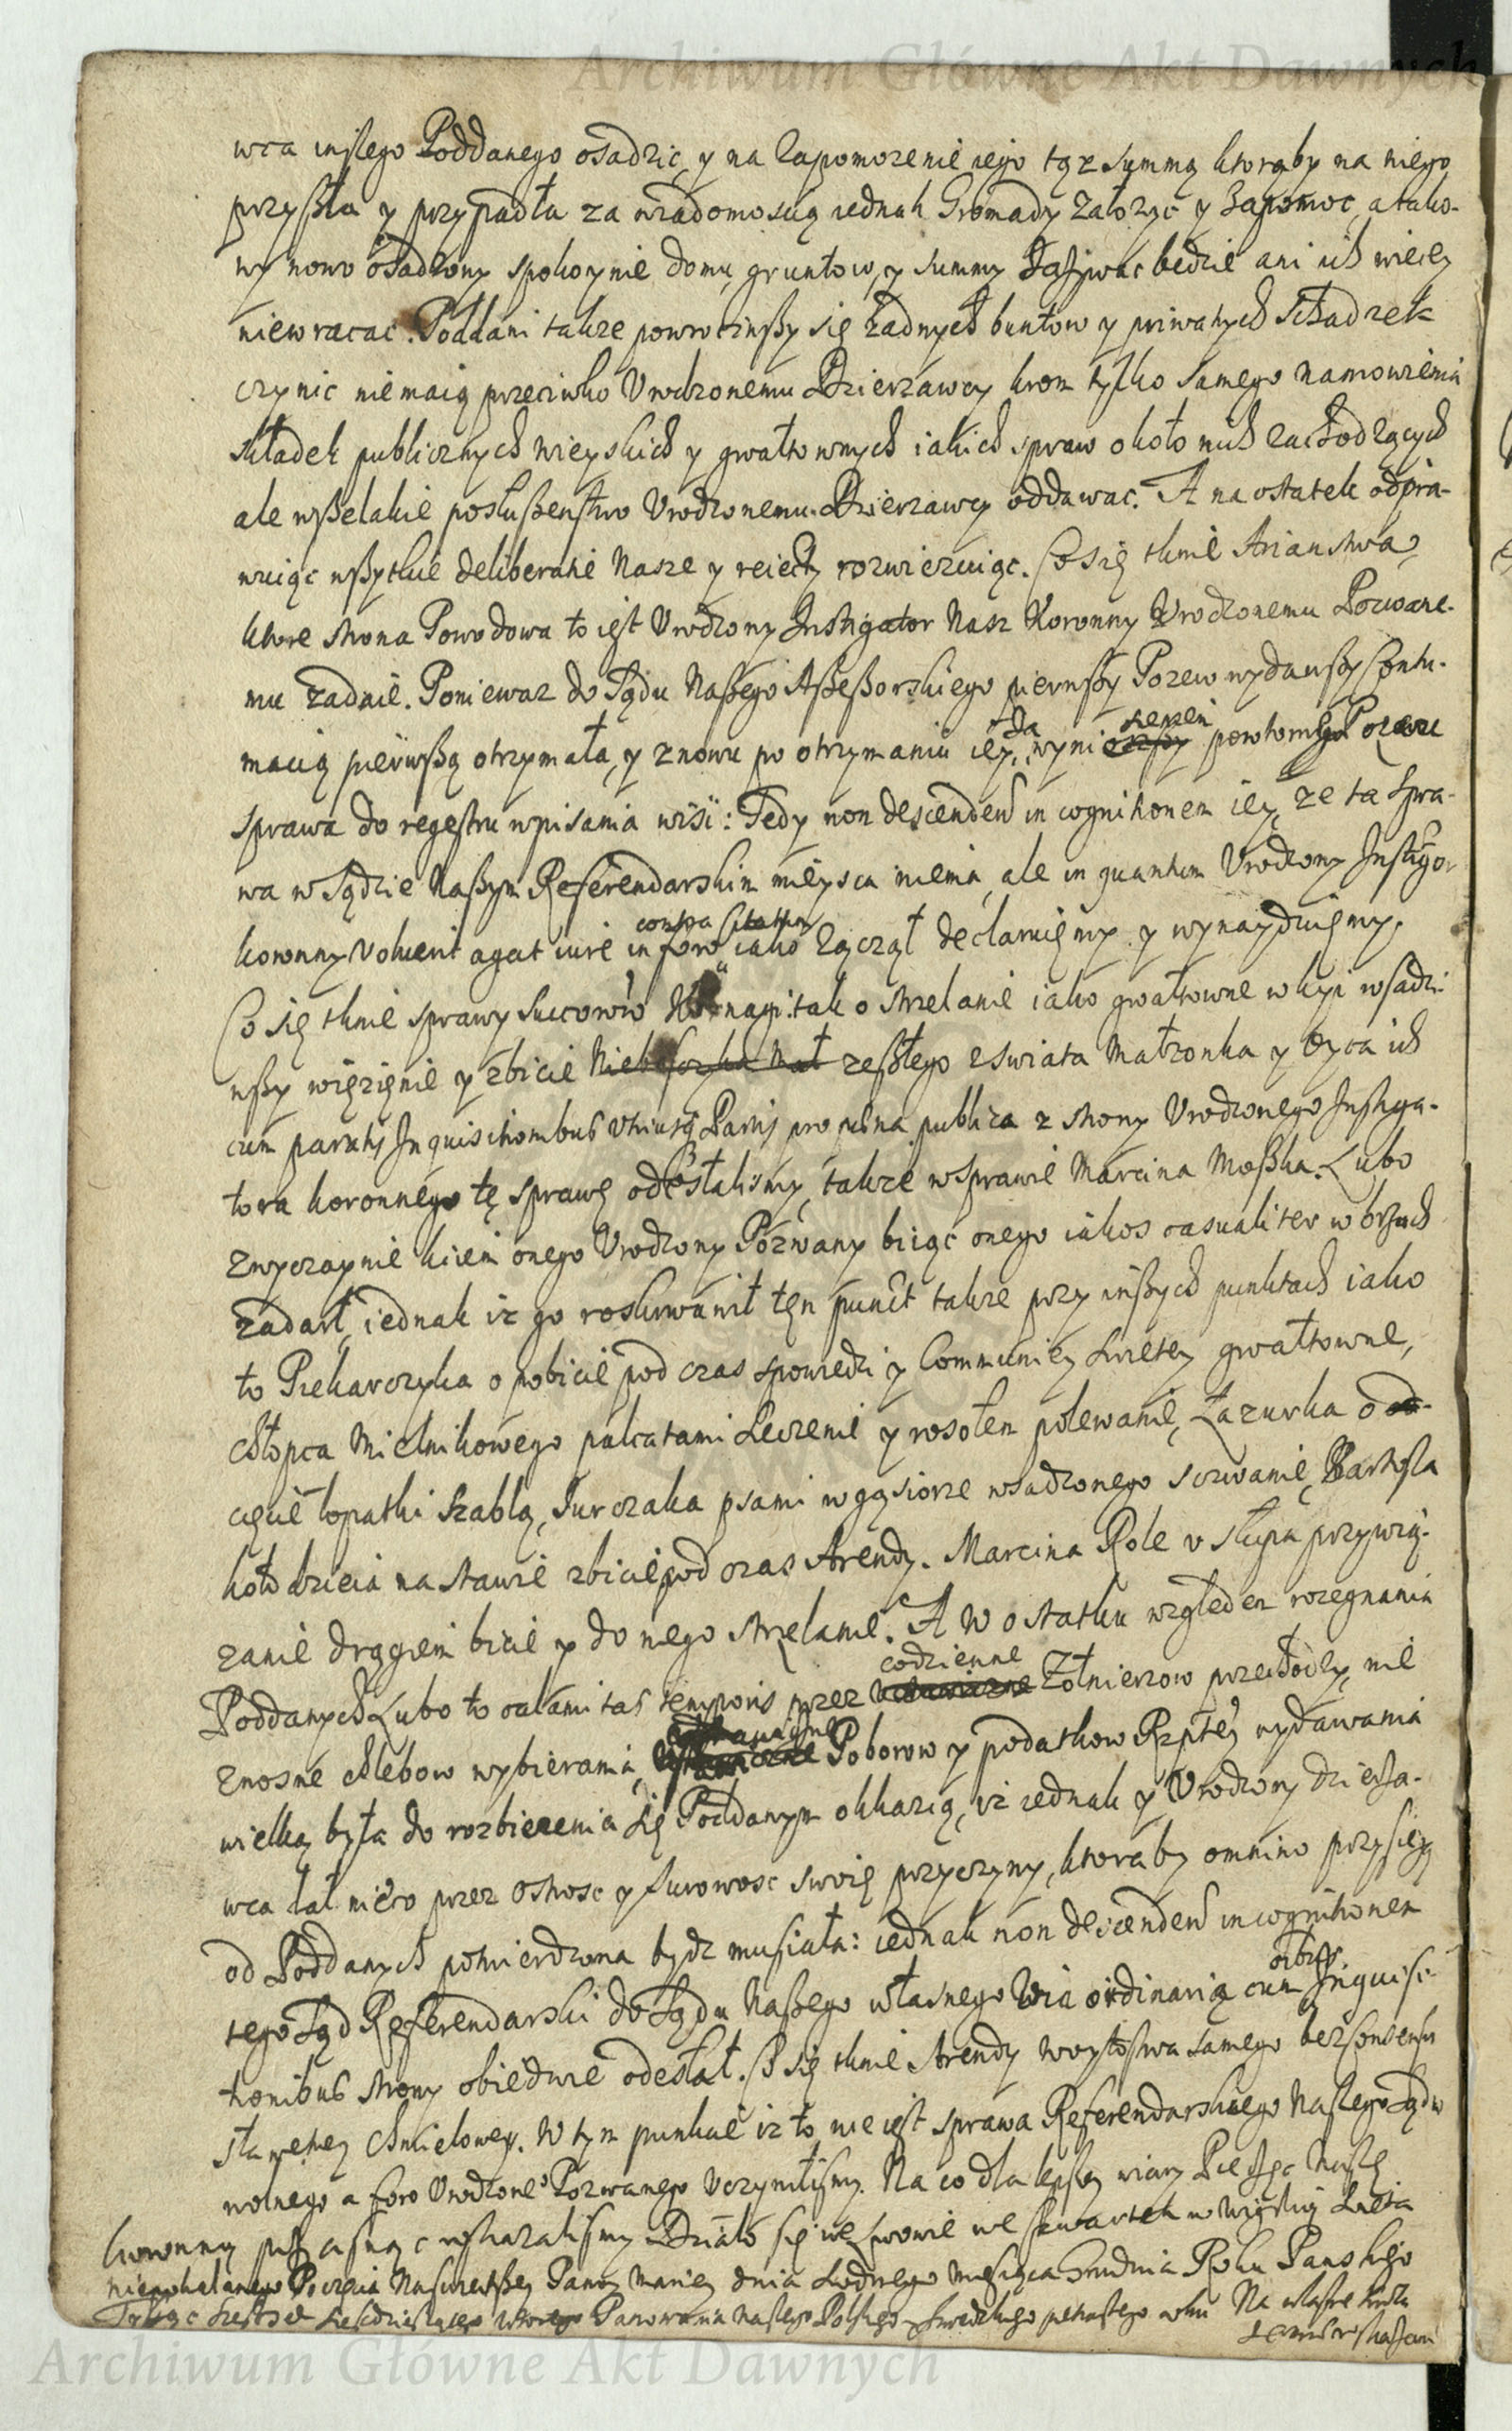 Archiwum Główne Akt Dawnych
wca inszego Poddanego osadzic, y na Zapomozenie iego tęz summą ktorąby na niego
przyszła y przypadła za wiadomoscią iednak Gromady Załozyc y Zapomoc, a tako-
wy nowo osadzony spokoynie domu, gruntow, y summy Zazywac bedzie ani ich wiecey
niewracac. Poddani takze powrociwszy się zadnych buntow y priwatnych Schadzek
czynic niemaią przeciwko Vrodzonemu Dzierzawcy krom tylko samego namowienia
składek publicznych wieyskich y gwałtownych iakich spraw około nich zachodzących
ale wszelakie posłuszenstwo Vrodzonemu Dzierzawcy oddawac. A na ostatek odpra-
wuiąc wszytkie deliberatie Nasze y reiecty rozwiezuiąc. Co się tknie Arianstwa,
ktore strona Powodowa to iest Vrodzony Instigator Nasz Koronny Vrodzonemu Pozwane-
mu zadaie. Poniewaz do Sądu Naszego Assessorskiego pierwszy Pozew wydawszy Contu-
macią pierwszą otrzymała, y znowu po otrzymaniu iey, wyni powtornego Pozwu
sprawa do regestru wpisania wisi: Tedy non descendend in cognitionem iey, ze ta spra-
wa w Sądzie Naszym Referendarskim mieysca niema, ale in quantum Vrodzony Instigor
koronny voluerit agat iure contra Citatum in foro iako Zaczął declaruiemy y wynayduiemy.
Co się tknie sprawy Succorow tak o strzelanie iako gwałtowne w kyi wsadzi-
wszy więzięnie y zbicie zeszłego z swiata Małzonka y Oyca ich
cum paratis Inquisitionibus vtriusq Partis pro pœna publica z strony Vrodzonego Instiga-
tora koronnego tę sprawę odesłalismy, takze w sprawie Marcina Moszka. Lubo
zwyczaynie kiiem onego Vrodzony Pozwany biiąc onego iakos casualiter w brzuch
zadarł, iednak iz go roskrwawił tęn punct takze przy inszych punktach iako
to Piekarczyka o pobicie pod czas spowiedzi y Communiey swietey gwałtowne,
chłopca Mielnikowego palcatami Sieczenie y rosołem polewanie, Łazurka o od-
cięcie łopatki Szablą, Jurczaka psami w gąsiorze wsadzonego sczwanie, Bartosza
kołodzieia na stawie zbicie pod czas Arendy. Marcina Role v słupa przywią-
zanie drągiem bicie y do niego strzelanie. A w ostatku względem rozegnania
Poddanych Lubo to calamitas temporis przez codzienne Zołnierzow przechody, nie
znosne chlebow wybierania, Poborow y podatkow Rzptey wydawania
wielką była do rozbiezenia się Poddanym okkazią, iz iednak y Vrodzony dzierza-
wca dał nieco przez ostrosc y surowosc swoię przyczyny, ktoraby omnino przysięgą
od Poddanych potwierdzona bydz musiała: iednak non descendend in cognitionem
tego Sąd Referendarski do Sądu Naszego własnego via ordinaria cum Inquisi-
tionibus strony obiedwie odesłał. Co się tknie Arendy woytostwa samego bez consensu
sławetney Chmielowey. W tym punkcie iz to nie iest sprawa Referendarskiego Naszego Sądu
wolnego a foro Vrodzoneo Pozwanego Vczynilismy. Na co dla lepszey wiary Pieczęc Naszę
koronną przycisnąc roskazalismy. Działo się we Lwowie we czwartek w Wigilią Swięta
niepokalanego Poczęcia Naswietszey Panny Mariey dnia siodmego Miesiąca Grudnia Roku Panskiego
Tysiąc Szescset Szescdziesiątego wtorego Panowania Naszego Polskiego y Szwedzkiego Na własne
Archiwum Główne Akt Dawnych